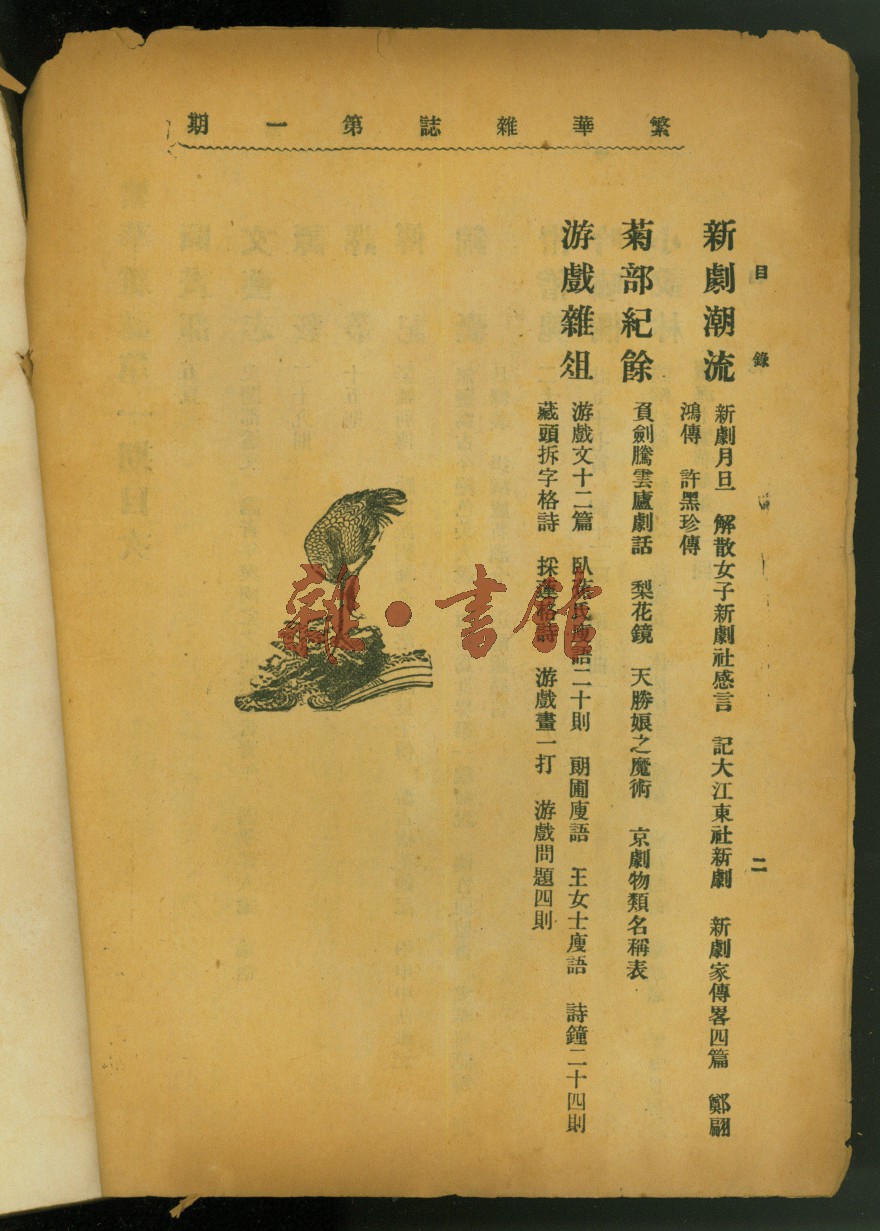 繁華雜誌第一期
目錄 二
新劇潮流
新劇月旦 解散女子新劇社感言 記大江東社新劇 新劇家傳畧四篇 鄭翩
鴻傳 許黑珍傳
菊部紀餘
負劍騰雲廬劇話 梨花鏡 天勝娘之魔術 京劇物類名稱表
游戲雜俎
游戲文十二篇 臥 氏廋語二十則 朗圃廋語 王女士廋語 詩鐘二十四則
藏頭拆字格詩 採蓮格詩 游戲畫一打 游戲問題四則
雜·書館